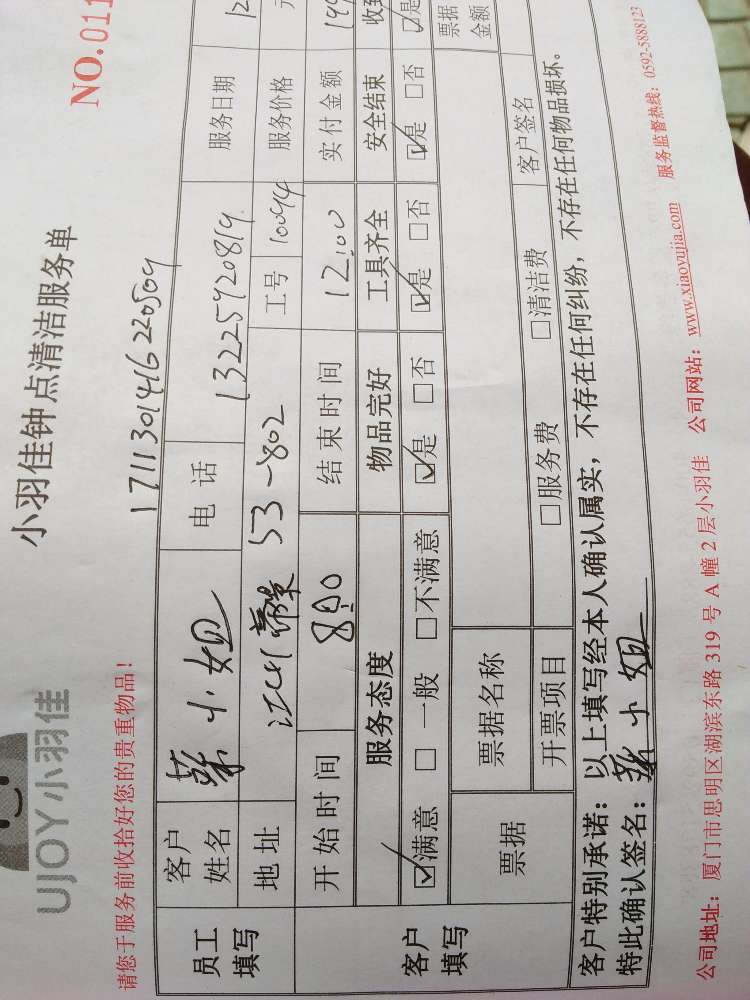 UJOY小羽佳
小羽佳钟点清洁服务单
NO.011
请您于服务前收拾好您的贵重物品!
171130141622050
员工填写
客户姓名
小姐
电话
13225920819
服务日期
12
地址
53-802
工号
10094
服务价格
元
客户填写
开始时间
8:00
结束时间
12:00
实付金额
服务态度
物品完好
工具齐全
安全结束
收到
☑满意 □一般 □不满意
☑是 □否
☑是 □否
☑是 □否
☑是
票据
票据名称
票据金额
开票项目
□服务费 □清洁费
客户签名
客户特别承诺:以上填写经本人确认属实,不存在任何纠纷,不存在任何物品损坏。
特此确认签名:小姐
公司地址:厦门市思明区湖滨东路 319 号 A 幢 2 层小羽佳 公司网站:www.xiaoyujia.com 服务监督热线:0592-5888123